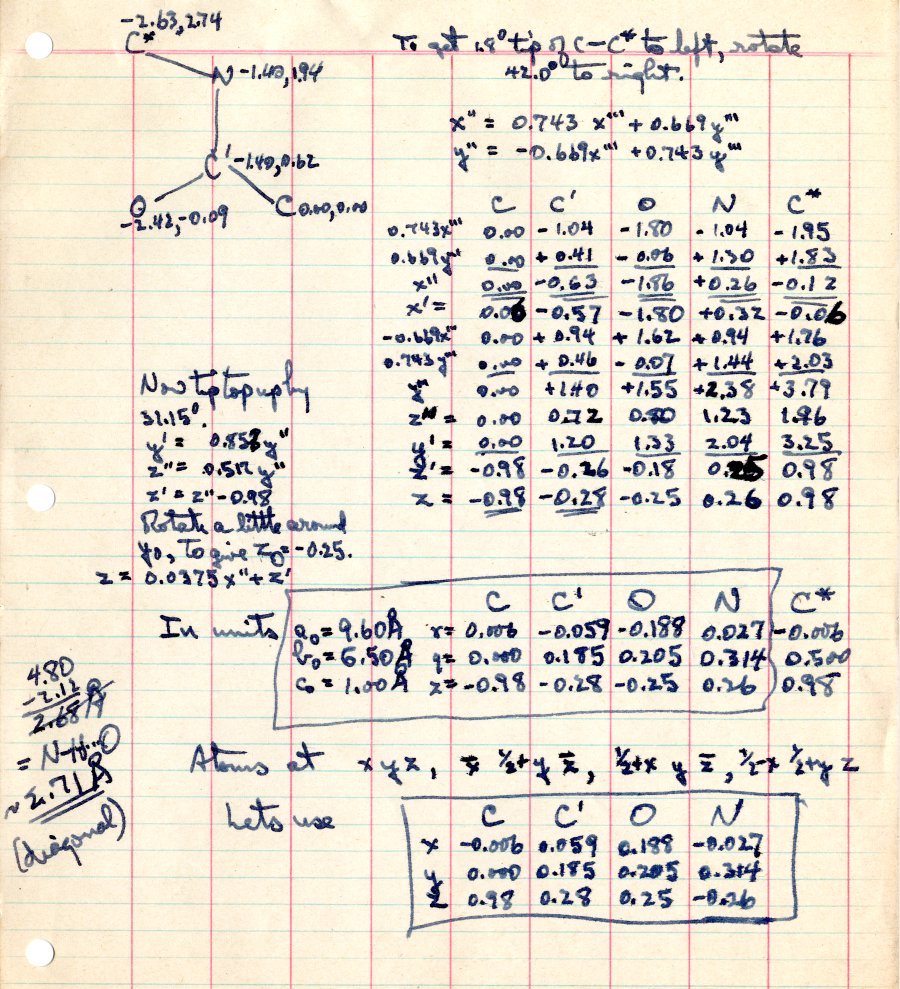 -2.63, 2.74
C*
N -1.40, 1.94
C' -1.40, 0.62
O -2.42, -0.09
C 0.00, 0.00
To get 1.8° tip of C-C* to left, rotate
42.0° to right.
x" = 0.743 x''' + 0.669 y'''
y" = -0.669x''' + 0.743 y'''
C C' O N C*
0.743x''' 0.00 -1.04 -1.80 -1.04 -1.95
0.669y''' 0.00 +0.41 -0.06 +1.30 +1.83
x" 0.00 -0.63 -1.86 +0.26 -0.12
x' = 0.06 -0.57 -1.80 +0.32 -0.06
-0.669x''' 0.00 +0.94 +1.62 +0.94 +1.76
0.743y''' 0.00 +0.46 -0.07 +1.44 +2.03
y" 0.00 +1.40 +1.55 +2.38 +3.79
z" = 0.00 0.72 0.80 1.23 1.96
y' = 0.00 1.20 1.33 2.04 3.25
z' = -0.98 -0.26 -0.18 0.25 0.98
z = -0.98 -0.28 -0.25 0.26 0.98
Now tip top up by
31.15°.
y' = y"
z" = 0.517 y"
z' = z" - 0.98
Rotate a little around
y₀, to give z₀ = -0.25.
z = 0.0375 x" + z'
C C' O N C*
In units a₀ = 9.60Å x = 0.006 -0.059 -0.188 0.027 -0.006
b₀ = 6.50Å y = 0.000 0.185 0.205 0.314 0.500
c₀ = 1.00Å z = -0.98 -0.28 -0.25 0.26 0.98
4.80
-2.12
2.68Å
= N-H...O
~ 2.71Å
(diagonal)
Atoms at x y z, x̄ ½+y z̄, ½+x y z̄, ½-x ½+y z
Lets use
C C' O N
x -0.006 0.059 0.188 -0.027
y 0.000 0.185 0.205 0.314
z 0.98 0.28 0.25 -0.26